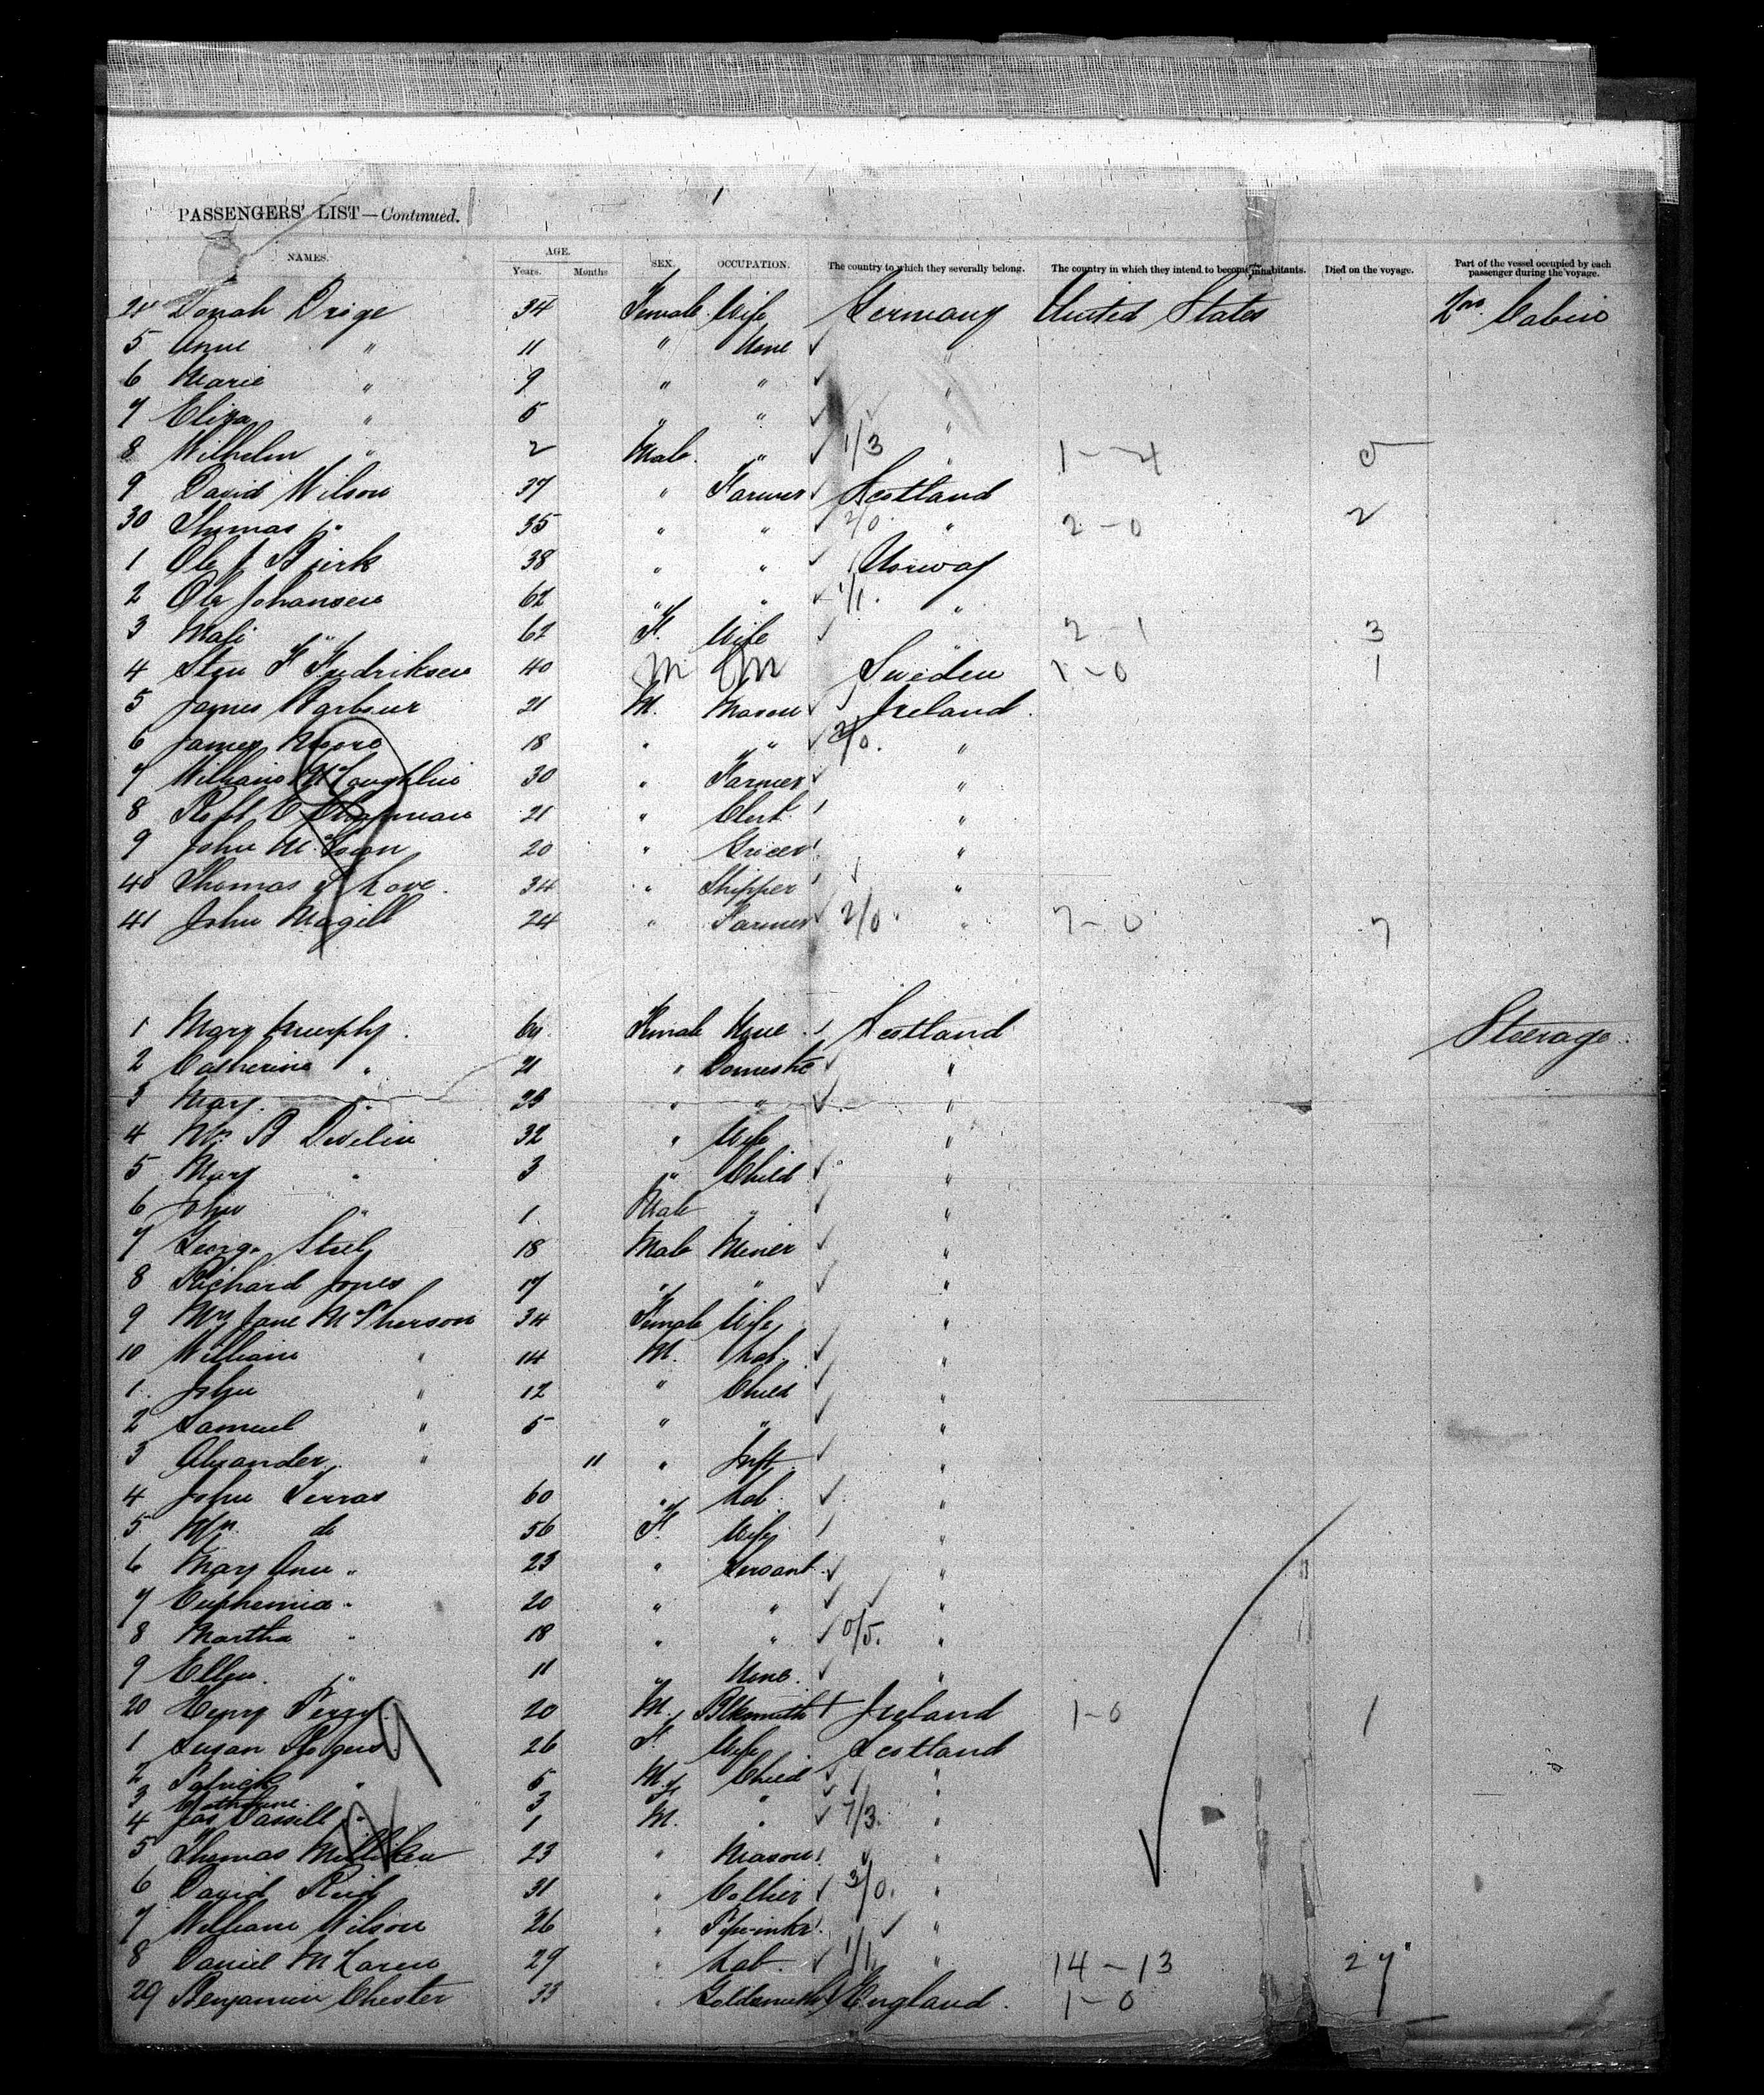 PASSENGERS' LIST—Continued.
NAMES. AGE. Years. Months SEX. OCCUPATION. The country to which they severally belong. The country in which they intend to become inhabitants. Died on the voyage. Part of the vessel occupied by each passenger during the voyage.
24 Dorah Dröge 34 Female Wife Germany United States 2nd Cabin
5 Anne " 11 " None ✓ "
6 Marie " 9 " " ✓ "
7 Eliza " 5 " " ✓ "
8 Wilhelm " 2 Male " ✓ 1/3 " 1 - 4 5
9 David Wilson 37 " Farmer ✓ Scotland
30 Thomas Do 35 " " ✓ 2/0 " 2 - 0 2
1 Ole J. Bjerk 38 " " ✓ Norway
2 Ole Johansen 62 " " ✓ 1/1. "
3 " 62 F. Wife ✓ 2 - 1 3
4 Sten F Fredriksen 40 M Sweden 1 - 0 1
5 James Barbour 21 M. Mason ✓ Ireland.
6 James Moore 18 " " ✓ 2/0. "
7 William McLoughlin 30 " Farmer ✓ "
8 Robt C Chapman 21 " Clerk "
9 John 20 " Grocer "
40 Thomas J Love. 34 " Shipper "
41 John Magill 24 " Farmer ✓ 2/0 " 7 - 0 7
1 Mary Murphy. 60 Female None Scotland Steerage
2 Catherine " 21 " Domestic ✓ "
3 Mary " 23 " " ✓ "
4 Mrs B Devlin 32 " Wife "
5 Mary " 3 " Child ✓ "
6 John " 1 Male " ✓ "
7 George Steel 18 Male Miner ✓ "
8 Richard Jones 17 " " ✓ "
9 Mrs Jane McPherson 34 Female Wife "
10 William " 14 M. Lab. ✓ "
1 John " 12 " Child ✓ "
2 Samuel " 5 " " ✓ "
3 Alexander " 11 " Inft. ✓ "
4 John Ferras 60 " Lab. ✓ "
5 Mrs do 56 F. Wife "
6 Mary Ann " 23 " Servant ✓ "
7 Euphemia " 20 " " ✓ "
8 Martha " 18 " " ✓ 0/5. "
9 Ellen " 11 " None ✓ "
20 Henry 20 M. Blksmith Ireland 1 - 0 1
1 Susan Rogers 26 F. Wife Scotland
2 Patrick " 5 M. Child ✓ "
3 Catherine " 3 F " ✓ "
4 Jas Cassell 1 M. " ✓ "
5 Thomas Milliken 23 " Mason "
6 David Reid 31 " Collier ✓ 3/0. "
7 William Wilson 26 " "
8 Daniel McLaren 29 " Lab. ✓ 1/1 " 14 - 13 27
29 Benjamin Chester 33 " Goldsmith England. 1 - 0 1